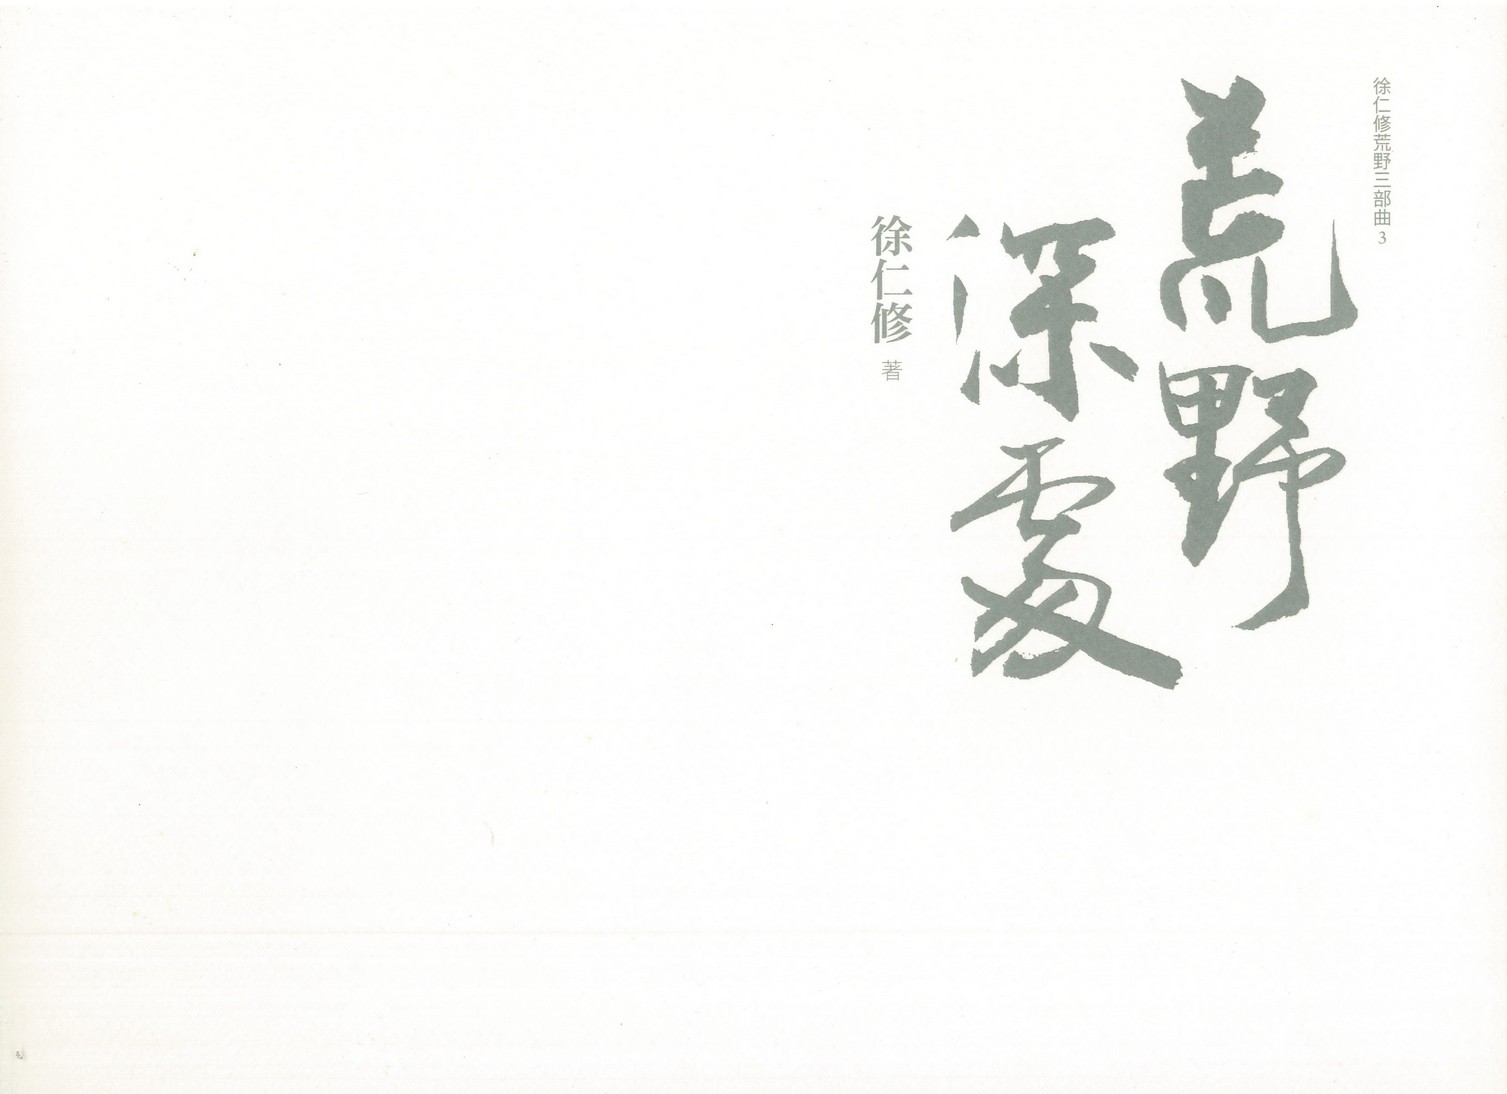 徐仁修荒野三部曲3
荒野
深處
徐仁修 著